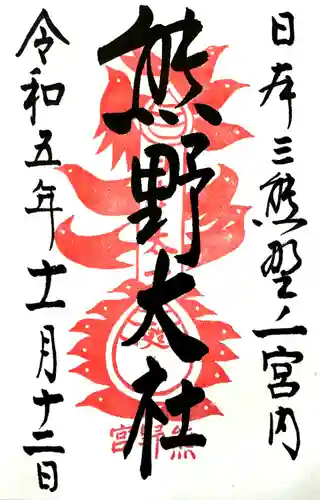 日本三熊野ノ宮内
熊野大社
令和五年十一月十二日
宮野熊